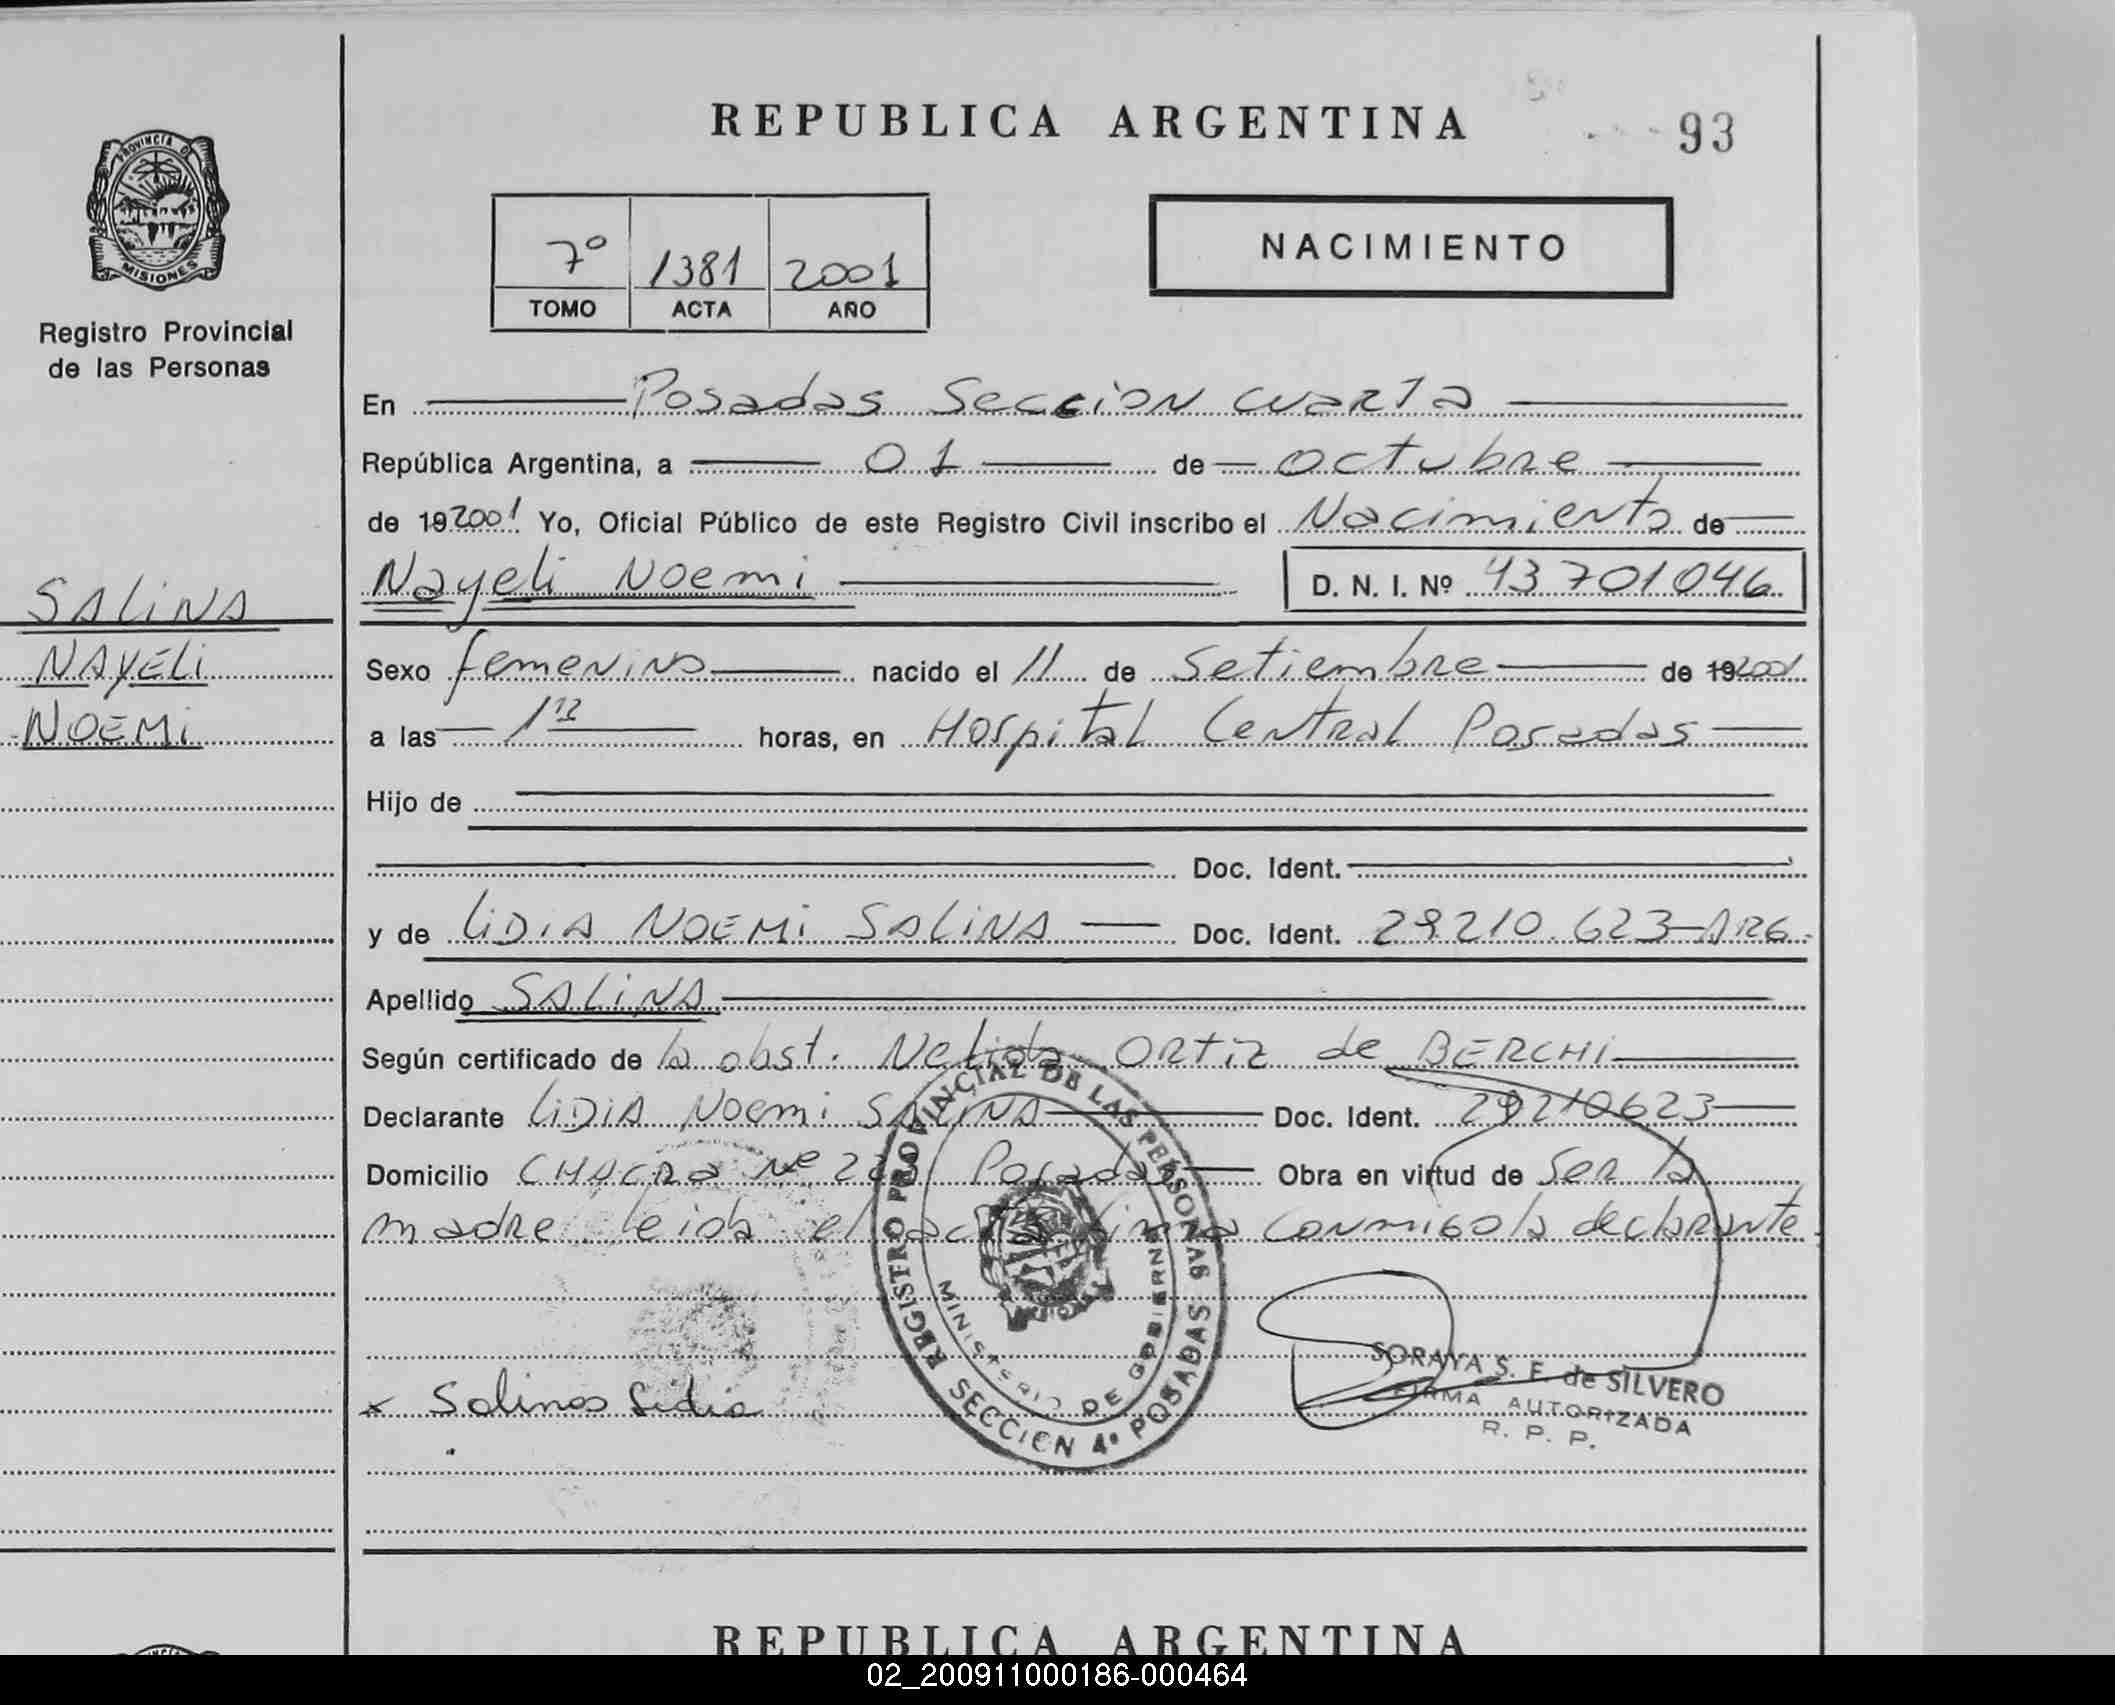 REPUBLICA ARGENTINA
93
PROVINCIA DE
MISIONES
Registro Provincial
de las Personas
7º 1381 2001
TOMO ACTA AÑO
NACIMIENTO
En Posadas Seccion cuarta
República Argentina, a 01 de octubre
de 19 2001 Yo, Oficial Público de este Registro Civil inscribo el Nacimiento de
Nayeli Noemi D. N. I. Nº 43701046
SALiNA
NAYELi
NOEMi
Sexo femenino nacido el 11 de Setiembre de 19 2001
a las horas, en Hospital Central Posadas
Hijo de
Doc. Ident.
y de LiDiA NOEMi SALiNA Doc. Ident. 29.210.623-ARG.
Apellido SALiNA
Según certificado de la obst. Nelida Ortiz de BERCHi
Declarante LiDiA Noemi SALiNA Doc. Ident. 29210623
Domicilio CHACRA Nº Posadas Obra en virtud de Ser la
madre leida el acta firma conmigo la declarante.
REGISTRO PROVINCIAL DE LAS PERSONAS
MINISTERIO DE GOBIERNO
SECCION 4ª POSADAS
x Salinas Lidia
SORAYA S. F. de SILVERO
FIRMA AUTORIZADA
R. P. P.
REPUBLICA ARGENTINA
02_200911000186-000464